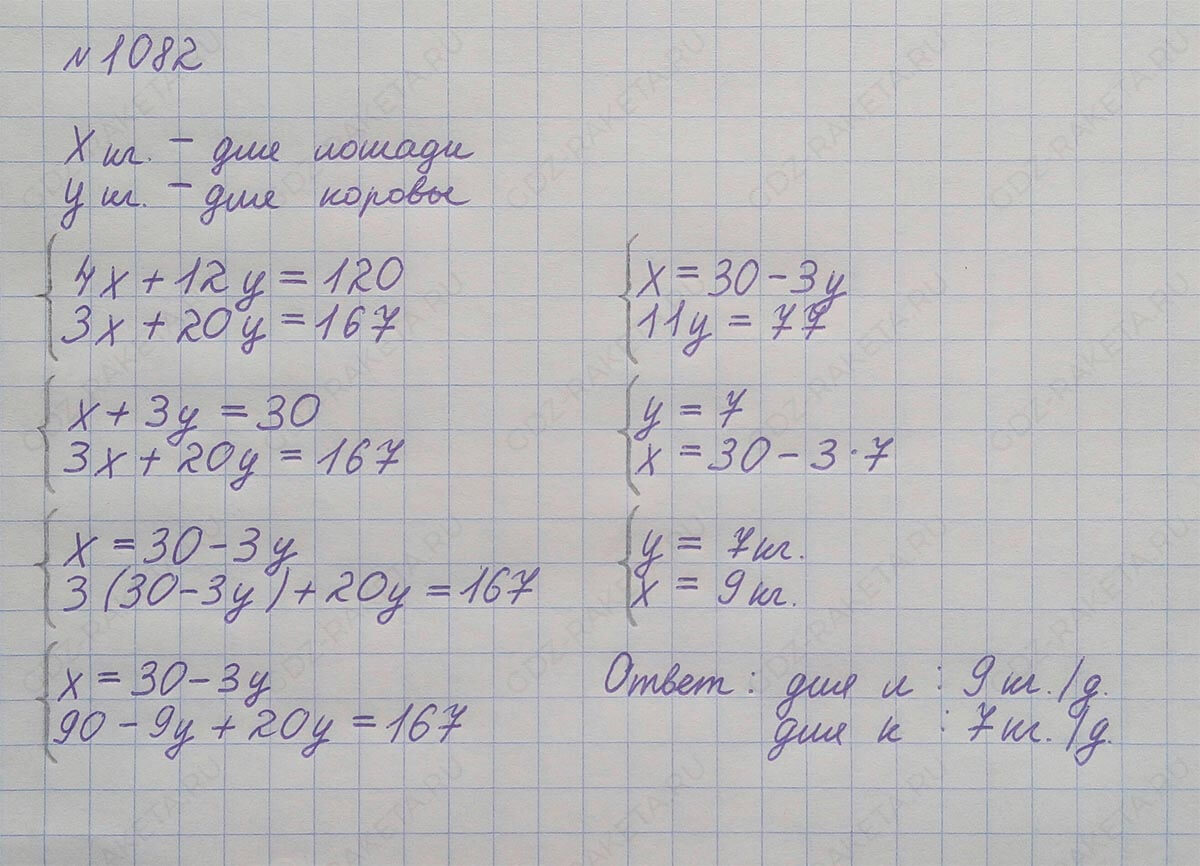 №1082
х кг. - для лошади
у кг. - для коровы
4х + 12у = 120
3х + 20у = 167
х + 3у = 30
3х + 20у = 167
х = 30 - 3у
3(30 - 3у) + 20у = 167
х = 30 - 3у
90 - 9у + 20у = 167
х = 30 - 3у
11у = 77
у = 7
х = 30 - 3 · 7
у = 7кг.
х = 9кг.
Ответ: для л : 9 кг./д.
для к : 7кг./д.
GDZ-RAKETA.RU